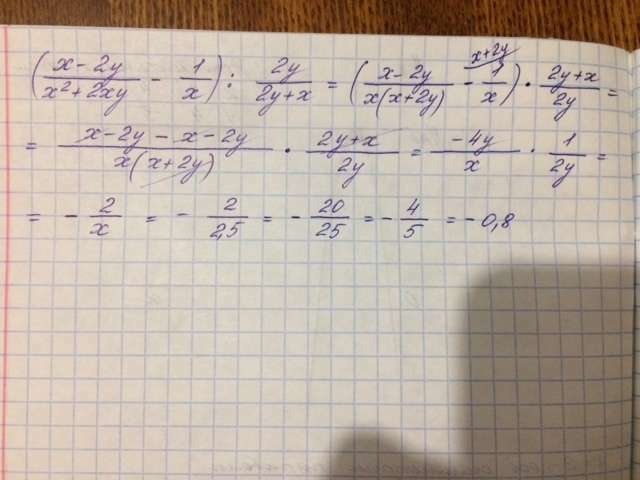 (x-2y/x²+2xy - 1/x) : 2y/2y+x = (x-2y/x(x+2y) - 1/x ^(x+2y)) · 2y+x/2y =
= x-2y-x-2y/x(x+2y) · 2y+x/2y = -4y/x · 1/2y =
= -2/x = -2/2,5 = -20/25 = -4/5 = -0,8